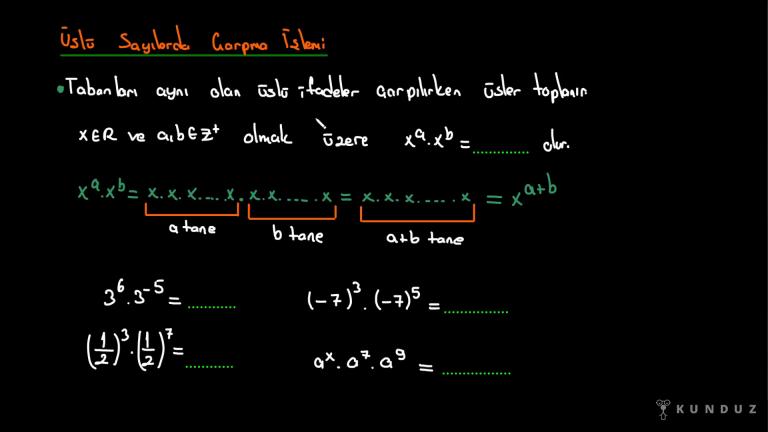 Üslü Sayılarda Çarpma İşlemi
• Tabanları aynı olan üslü ifadeler çarpılırken üsler toplanır
x∈R ve a,b∈Z⁺ olmak üzere xᵃ·xᵇ = ............ olur.
xᵃ·xᵇ = x.x.x....x.x.x.....x = x.x.x.....x = xᵃ⁺ᵇ
a tane b tane a+b tane
3⁶.3⁻⁵ = ............ (-7)³.(-7)⁵ = ............
(1/2)³.(1/2)⁷ = ............ aˣ.a⁷.a⁹ = ............
KUNDUZ